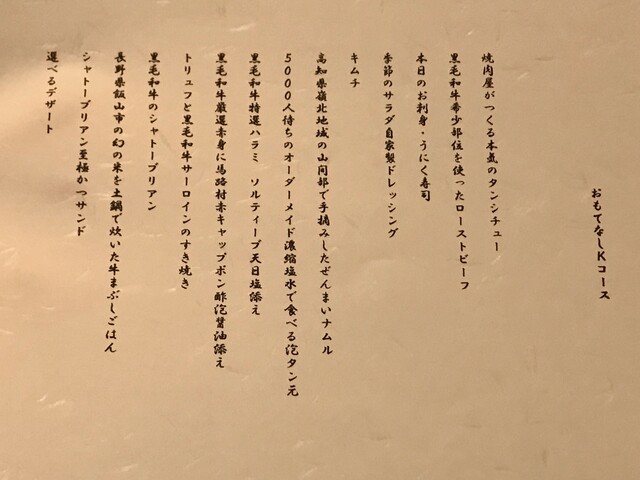 おもてなしKコース
焼肉屋がつくる本気のタンシチュー
黒毛和牛希少部位を使ったローストビーフ
本日のお刺身・うにく寿司
季節のサラダ自家製ドレッシング
キムチ
高知県嶺北地域の山間部で手摘みしたぜんまいナムル
5000人待ちのオーダーメイド濃縮塩水で食べる泡タン元
黒毛和牛特選ハラミ ソルティーブ天日塩添え
黒毛和牛厳選赤身に馬路村赤キャップポン酢泡醤油添え
トリュフと黒毛和牛サーロインのすき焼き
黒毛和牛のシャトーブリアン
長野県飯山市の幻の米を土鍋で炊いた牛まぶしごはん
シャトーブリアン至極かつサンド
選べるデザート